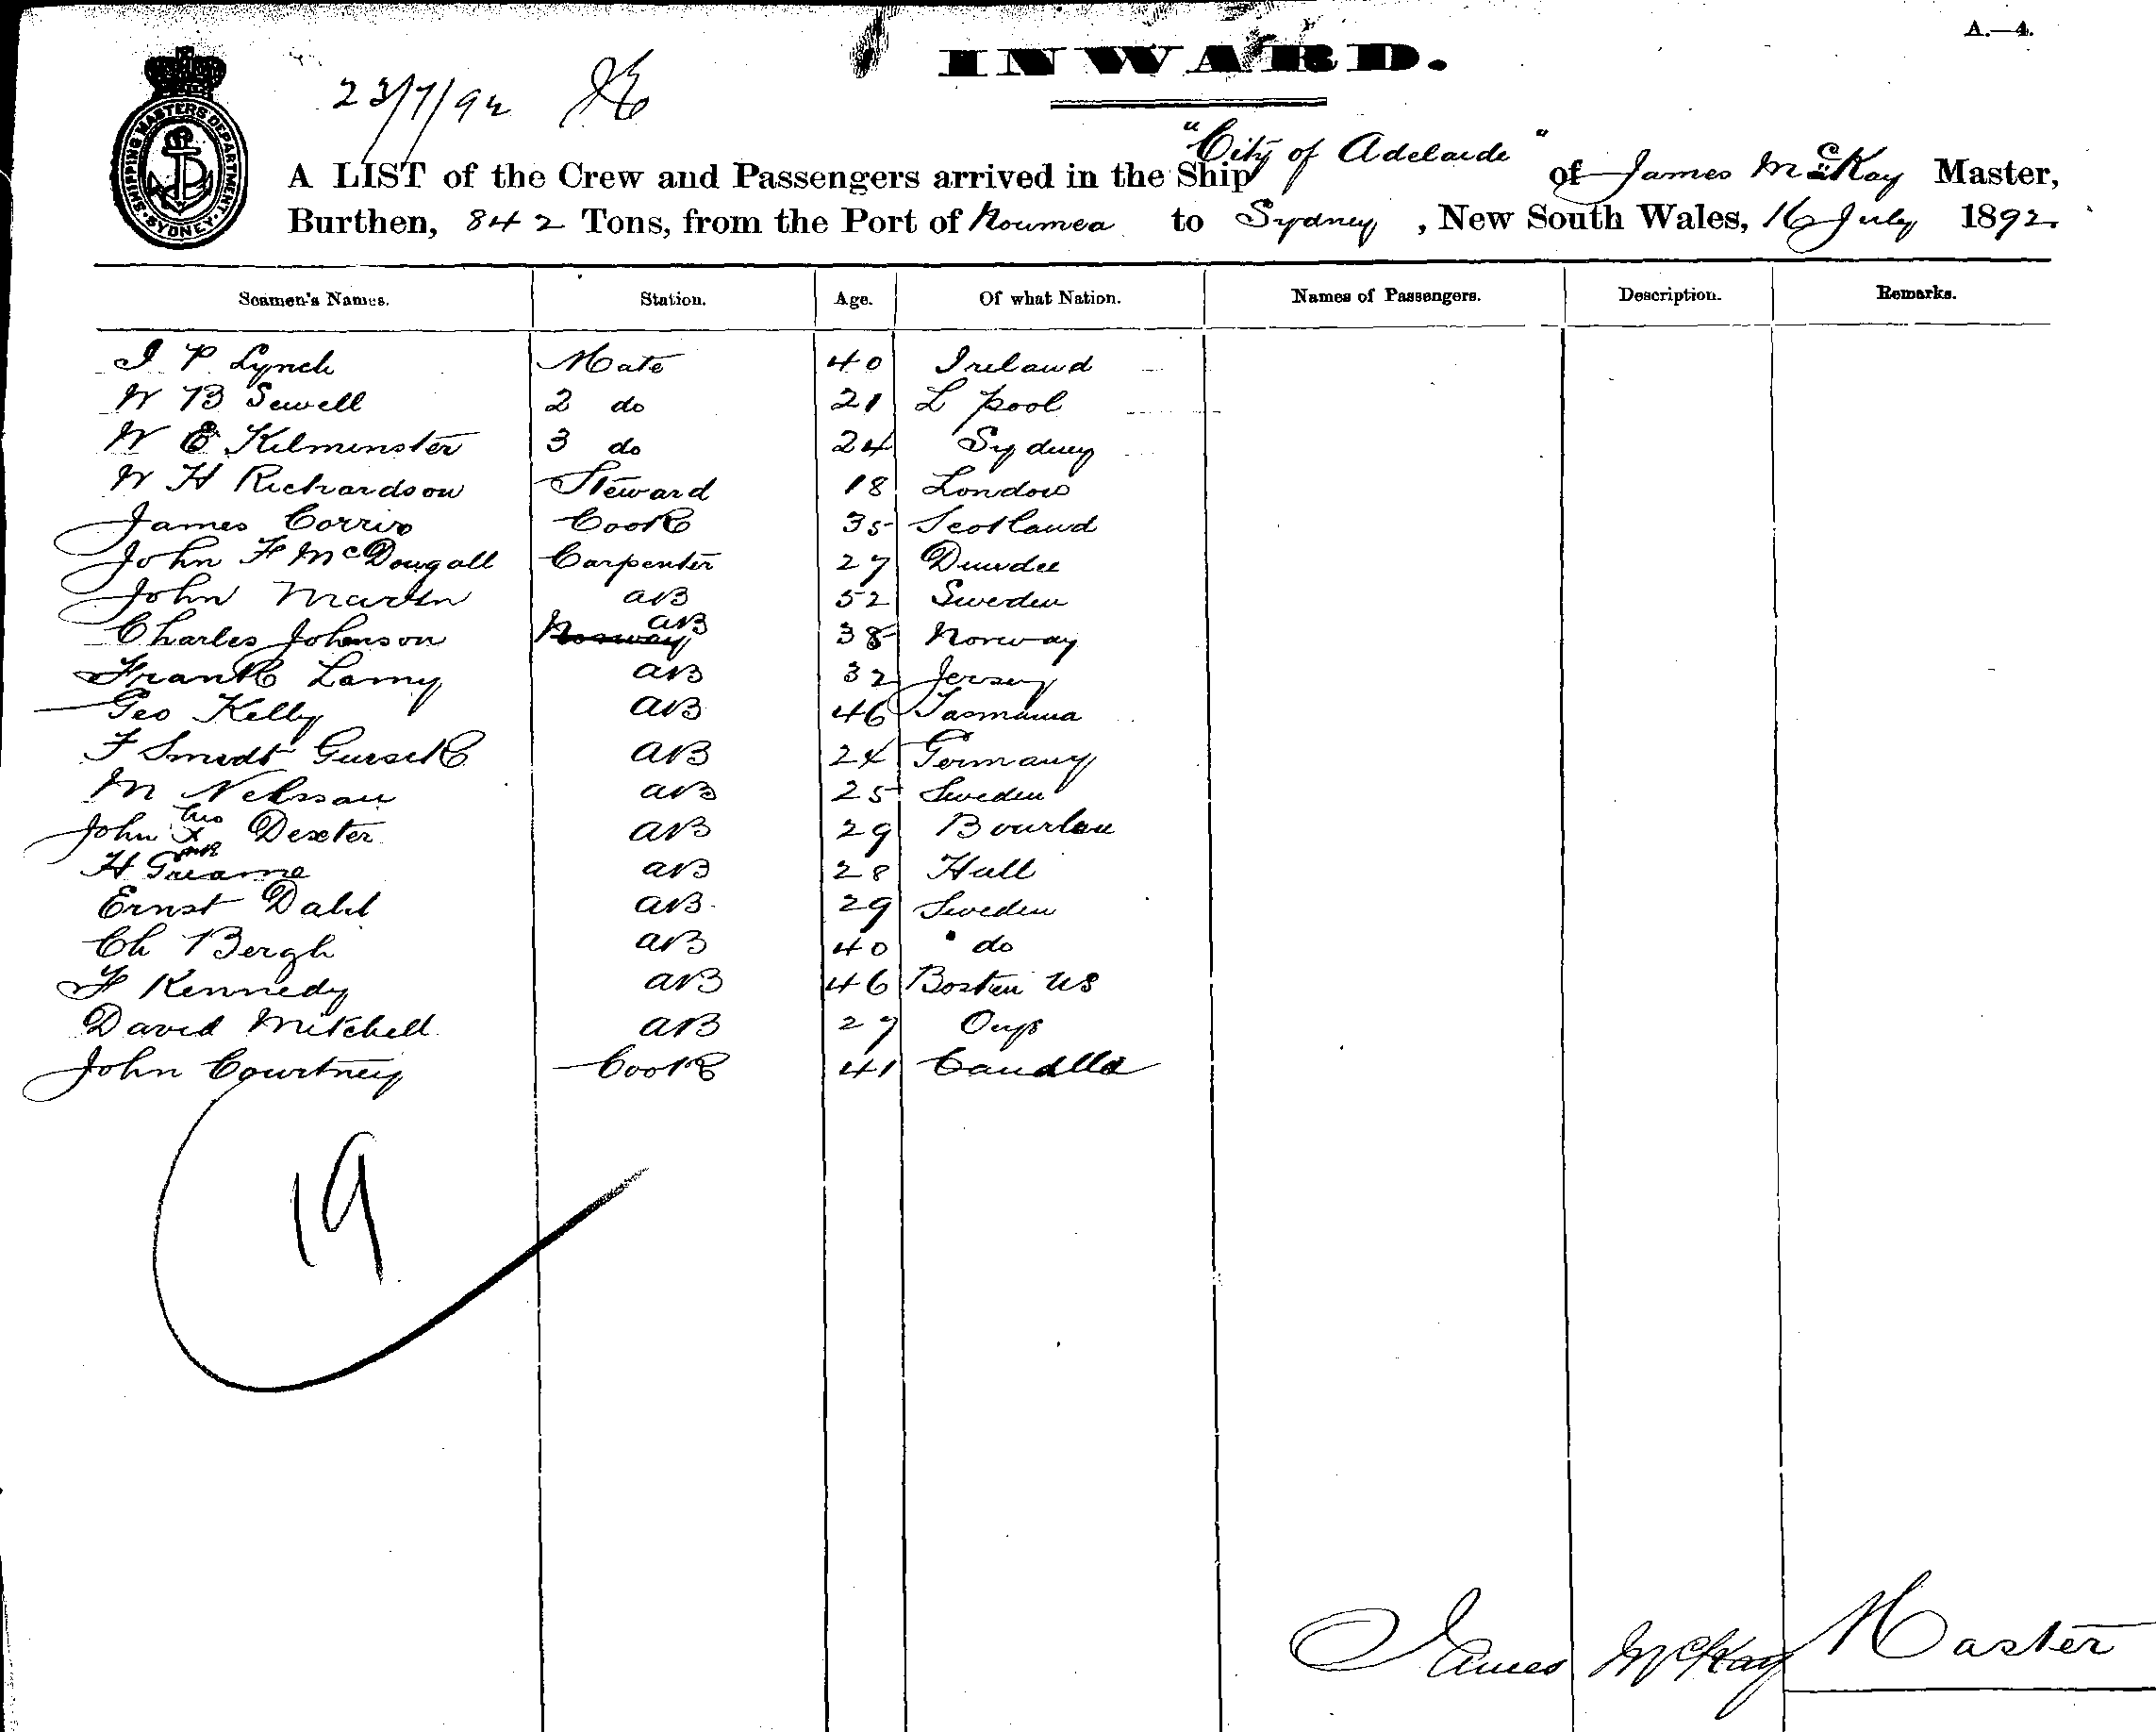 A.—4.
INWARD.
23/7/92
SHIPPING MASTERS DEPARTMENT
SYDNEY
A LIST of the Crew and Passengers arrived in the Ship "City of Adelaide" of James McKay Master,
Burthen, 842 Tons, from the Port of Noumea to Sydney, New South Wales, 16 July 1892.
Seamen's Names. Station. Age. Of what Nation. Names of Passengers. Description. Remarks.
J P Lynch Mate 40 Ireland
W B Sewell 2 do 21 L pool
W E Kilminster 3 do 24 Sydney
W H Richardson Steward 18 London
James Corrie Cook 35 Scotland
John F McDougall Carpenter 27 Dundee
John Martin AB 52 Sweden
Charles Johnson Norway AB 38 Norway
Frank Lamy AB 32 Jersey
Geo Kelly AB 46 Tasmania
F Smidt AB 24 Germany
M AB 25 Sweden
John his x Dexter AB 29
mark
H AB 28 Hull
Ernst Dahl AB 29 Sweden
Ch Bergh AB 40 " do
F Kennedy AB 46 Boston US
David Mitchell AB 27
John Courtney Cook 41
19
James McKay Master